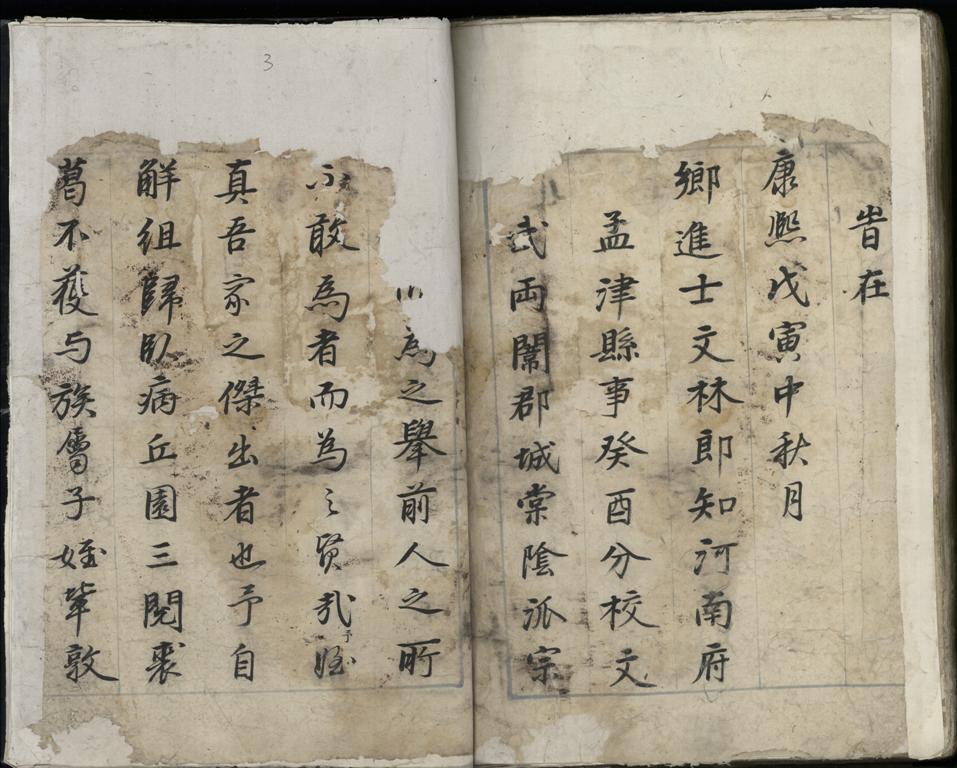 旹在
康熙戊寅中秋月
鄉進士文林郎知河南府
孟津縣事癸酉分校文
武両闈郡城棠陰派宗
為之舉前人之所
不敢為者而為之賢哉予姪
真吾家之傑出者也予自
解組歸臥病丘園三閱裘
葛不獲与族属子姪軰敦
3